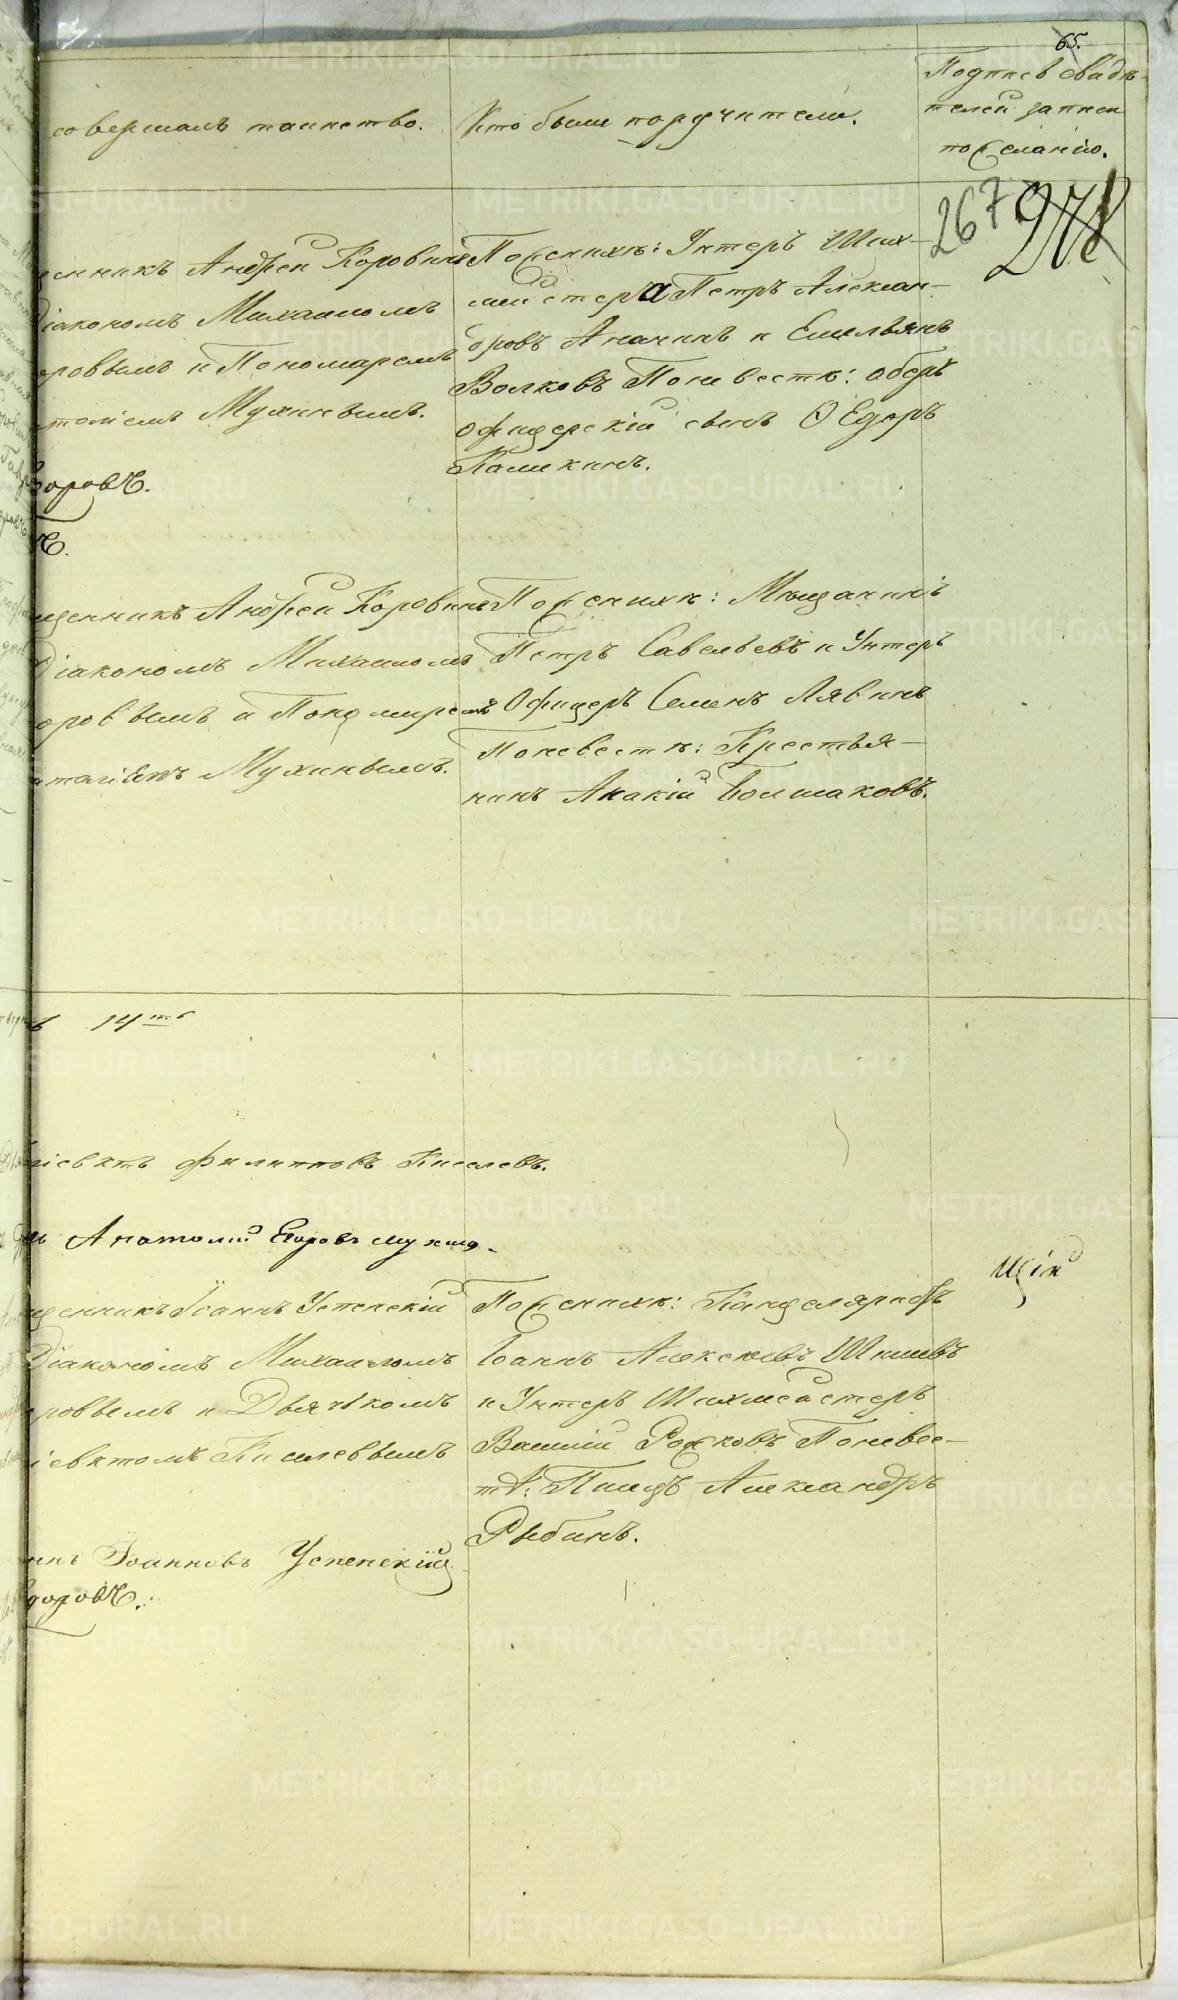 65.
совершалъ таинство.
Кто были поручители.
Подписъ свидѣ-
телей записи
по желанію.
267
278
Андрей Коровинъ
Діакономъ Михаиломъ
и Пономаремъ
Мухинымъ.
По женихѣ: Унтеръ Ших-
мейстера Петръ Алексан-
дровъ Ананинъ и Емельянъ
Волковъ По невестѣ: оберъ
офицерскій сынъ Ѳедоръ
Калимкинъ.
щенникъ Андрей Коровинъ
Діакономъ Михаиломъ
оровымъ и Пономаремъ
Мухинымъ.
По женихѣ: Мѣщанинъ
Петръ Савельевъ и Унтеръ
Офицеръ Семенъ Лявинъ
По невестѣ: Крестья-
нинъ Акакій Болшаковъ.
14
Филипповъ Киселевъ.
Анатолій Егоровъ Мухинъ.
щенникъ Іоаннъ Успенскій
Діакономъ Михаиломъ
и Дьячькомъ
Киселевымъ
По женихѣ: Канцеляристъ
Іоаннъ Алексѣевъ Шишевъ
и Унтеръ Шихмейстеръ
Василій Рожковъ По невес-
тѣ: Писецъ Александръ
Рыбинъ.
щій
Іоанновъ Успенскій
METRIKI.GASO-URAL.RU